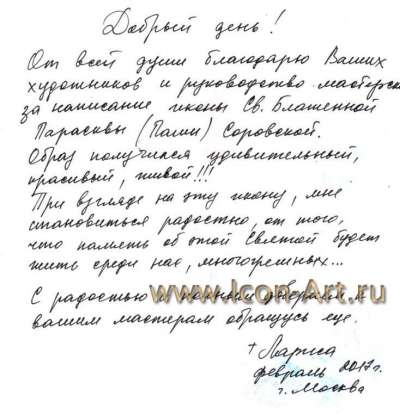 Добрый день!
От всей души благодарю Ваших
художников и руководство мастерск
за написание иконы Св. Блаженной
Парасквы (Паши) Соровской.
Образ получился удивительный,
красивый, живой!!!
При взгляде на эту икону, мне
становиться радостно, от того,
что память об этой Святой будет
жить среди нас, многогрешных...
www.Icon-Art.ru
С радостью и полным доверием к
вашим мастерам обращусь еще.
† Лариса
февраль 2017г.
г. Москва